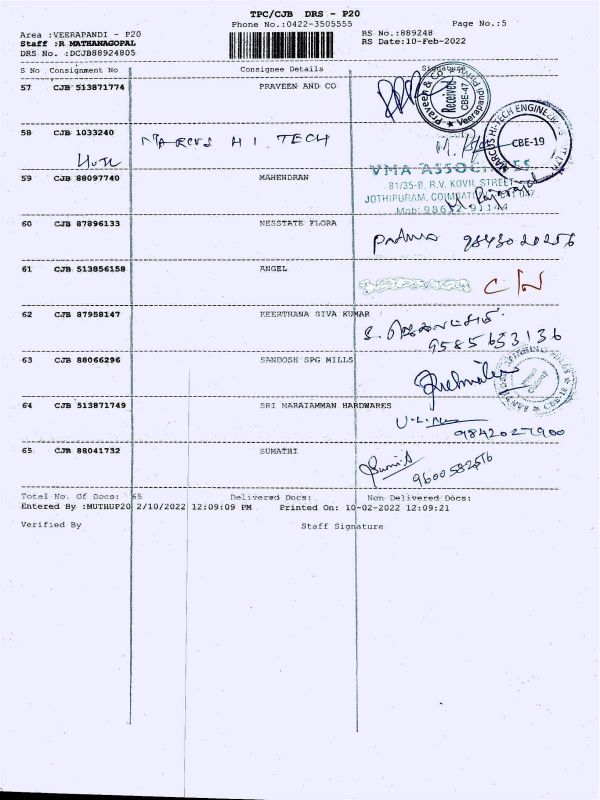 TPC/CJB DRS - P20
Phone No.:0422-3505555
Page No.:5
Area :VEERAPANDI - P20
RS No.:889248
Staff :R MATHANAGOPAL
RS Date:10-Feb-2022
DRS No. :DCJB88924805
S No Consignment No Consignee Details Signature
57 CJB 513871774 PRAVEEN AND CO
Praveen & Co
Received
CBE-47
Veerapandi
58 CJB 1033240 MARCUS HI TECH
MARCUS HI-TECH ENGINEERING
CBE-19
VMA ASSOCIATES
59 CJB 88097740 MAHENDRAN
81/35-B, R.V. KOVIL STREET
JOTHIPURAM, COIMBATORE
Mob: 98652 91144
60 CJB 87896133 NESSTATE FLORA
Padma 9843020256
61 CJB 513856158 ANGEL
C/N
62 CJB 87958147 KEERTHANA SIVA KUMAR
9585653136
63 CJB 88066296 SANDOSH SPG MILLS
64 CJB 513871749 SRI MARAIAMMAN HARDWARES
9842027900
65 CJB 88041732 SUMATHI
9600582516
Total No. Of Docs: 65 Delivered Docs: Non Delivered Docs:
Entered By :MUTHUP20 2/10/2022 12:09:09 PM Printed On: 10-02-2022 12:09:21
Verified By Staff Signature